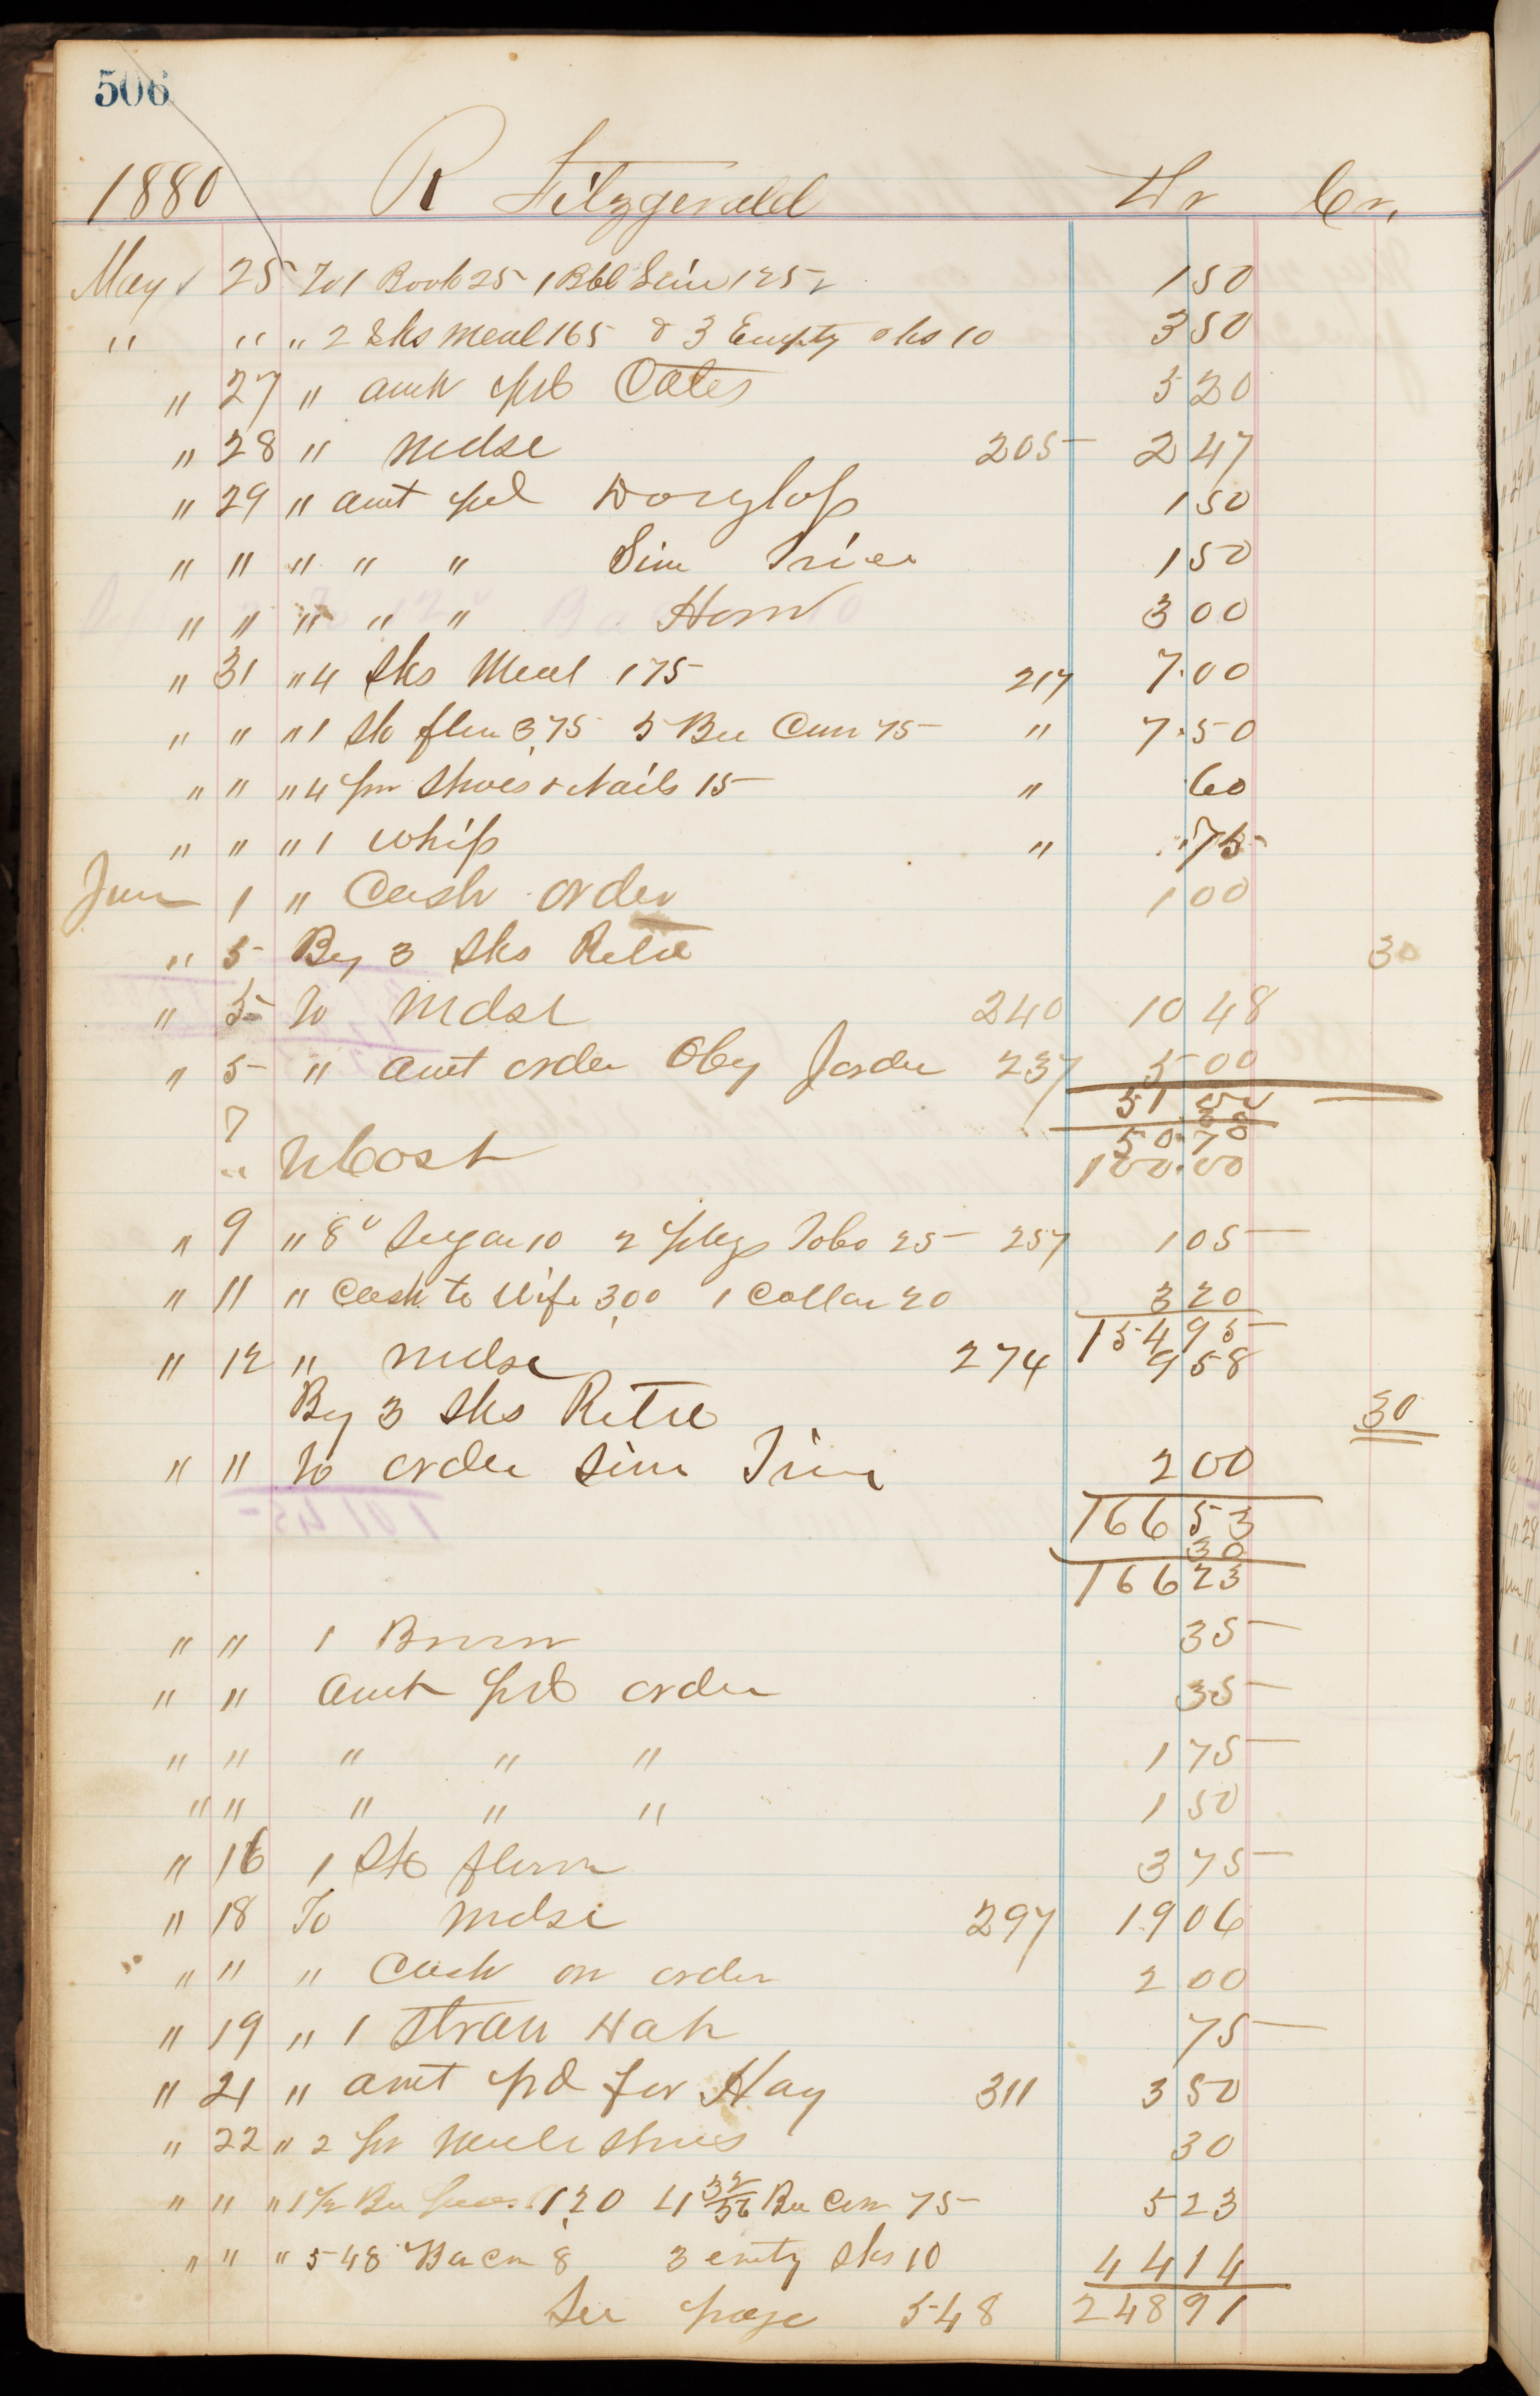 506
1880 R Fitzgerald Dr Cr.
May 25 To 1 Book 25 1 Bbl Lime 125 1 50
" " " 2 Sks Meal 165 & 3 Empty sks 10 3 50
" 27 " amt pd Cates 5 20
" 28 " Mdse 205 2 47
" 29 " amt pd 1 50
" " " " " Sim 1 50
" " " " " Horn 3 00
" 31 " 4 Sks Meal 175 217 7.00
" " " 1 Sk flour 3,75 5 Bu Corn 75 " 7.50
" " " 4 pr Shoes & Nails 15 " 60
" " " 1 Whip " 75
Jun 1 " Cash order 1 00
" 5 By 3 Sks Retd 30
" 5 To Mdse 240 10 48
" 5 " amt order Oby 237 5 00
51 00
30
7 50.70
" To Cost 100.00
" 9 " 8 Sugar 10 2 pkgs Tobo 25 257 1 05
" 11 " Cash to Wife 3,00 1 Collar 20 3 20
154 95
" 12 " Mdse 274 9 58
By 3 Sks Retd 30
" " To order Sim 2 00
166 53
30
166 23
" " 1 35
" " amt pd order 35
" " " " " 1 75
" " " " " 1 50
" 16 1 Sk flour 3 75
" 18 To Mdse 297 19 06
" " " Cash on order 2 00
" 19 " 1 Straw Hat 75
" 21 " amt pd for Hay 311 3 50
" 22 " 2 pr Mule Shoes 30
" " " 1 1/2 Bu peas 1,20 4 32/56 Bu Corn 75 5 23
" " " 548 Bacon 8 3 emty sks 10 44 14
See page 548 248 91